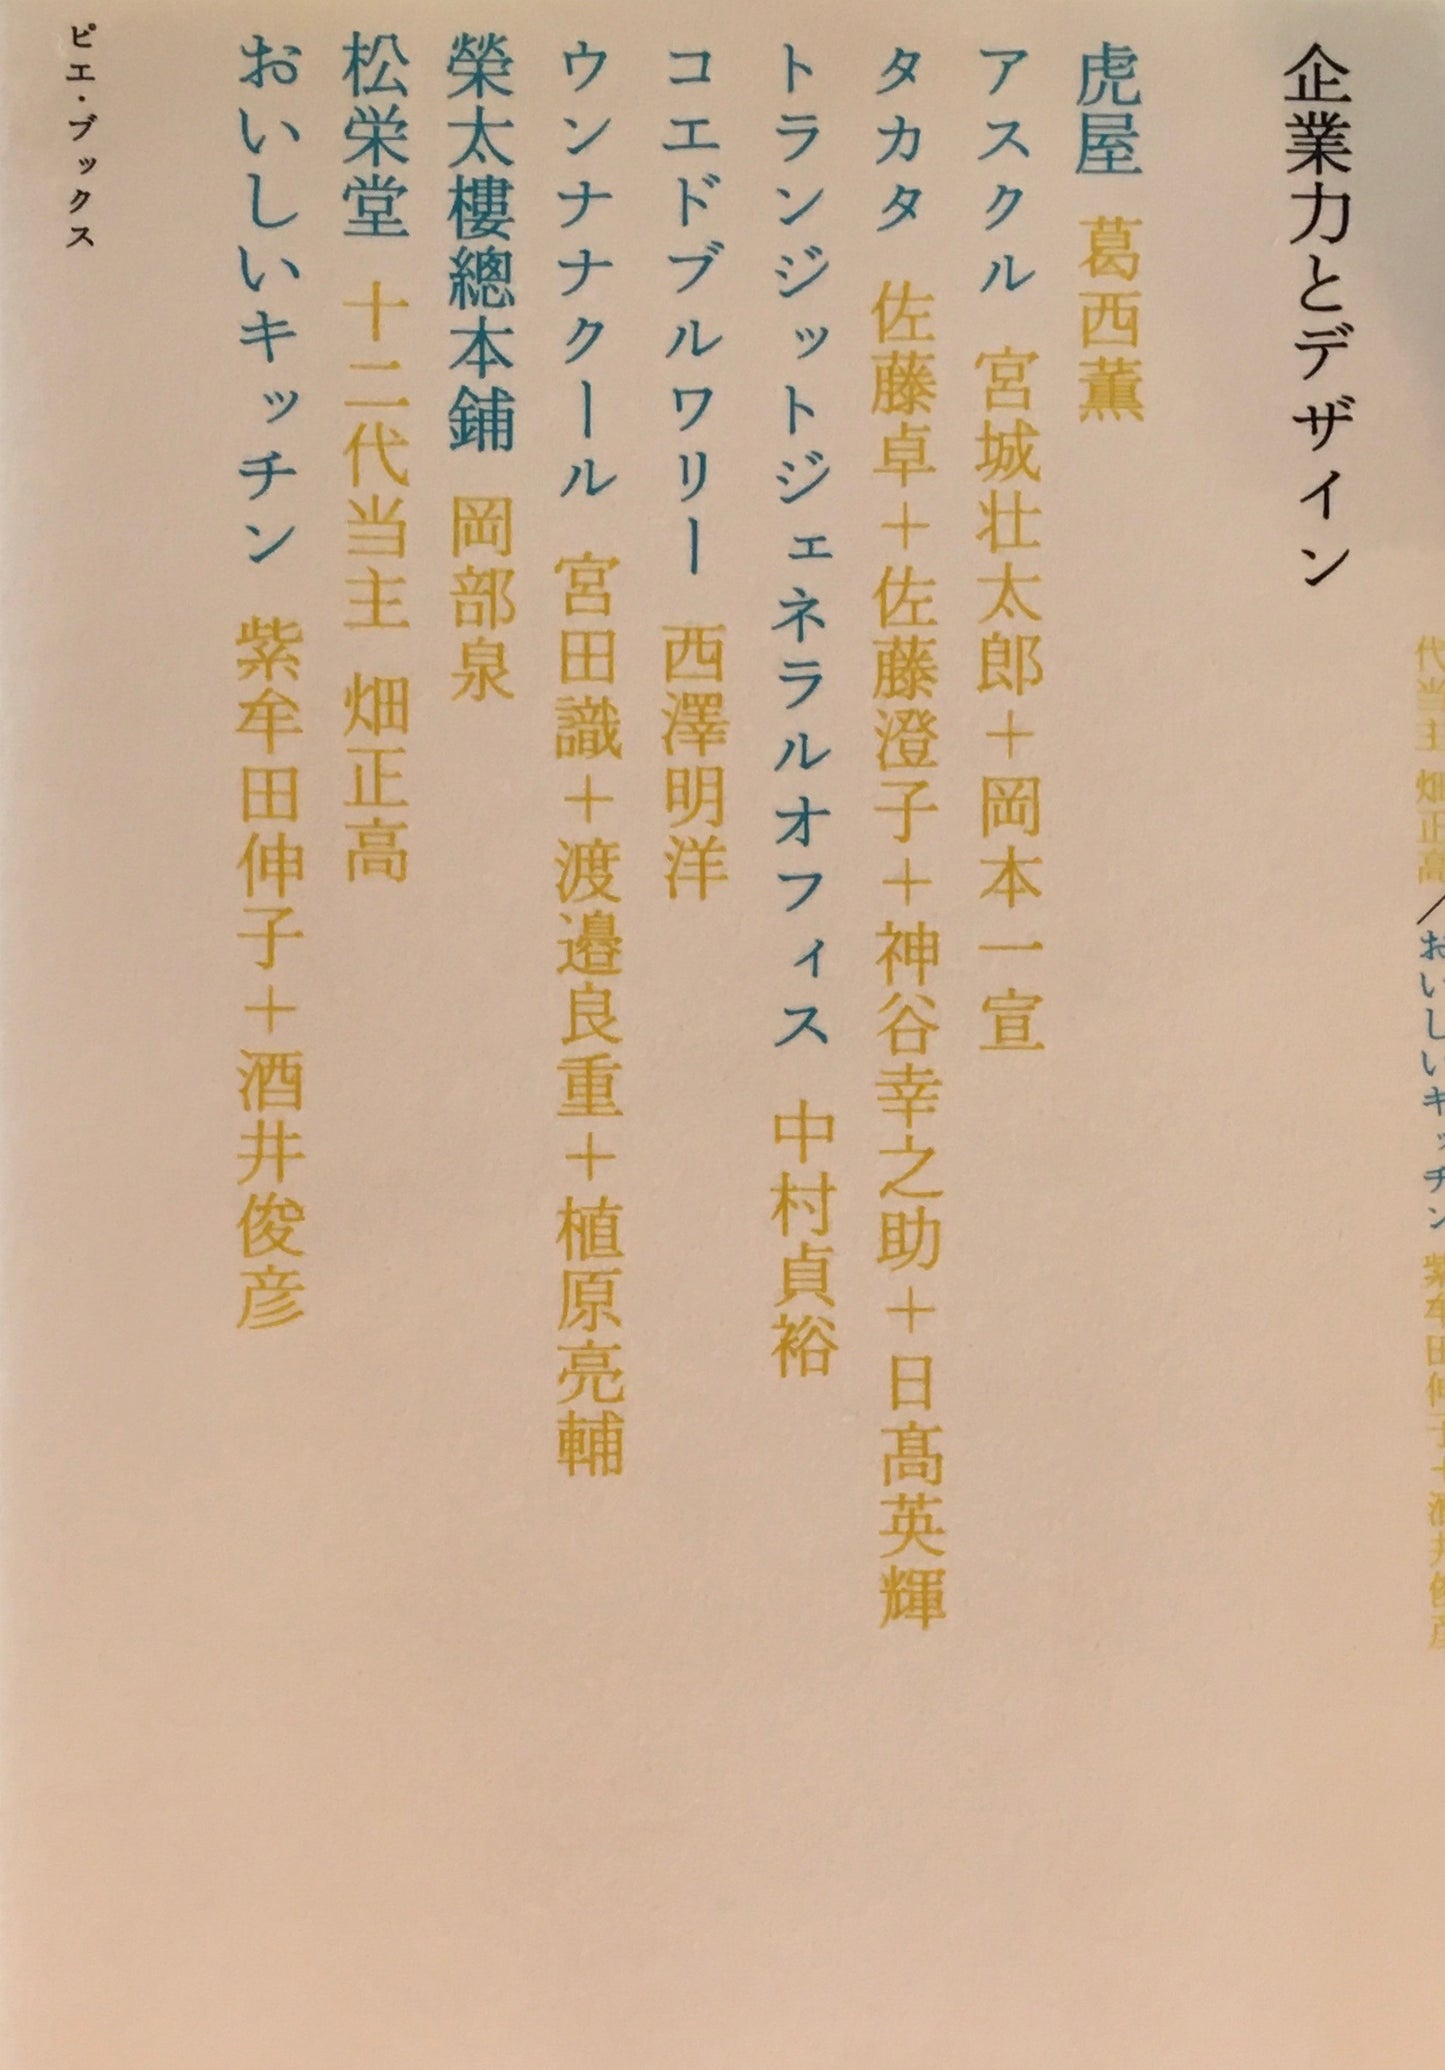 企業力とデザイン
虎屋 葛西薫
アスクル 宮城壮太郎＋岡本一宣
タカタ 佐藤卓＋佐藤澄子＋神谷幸之助＋日髙英輝
トランジットジェネラルオフィス 中村貞裕
コエドブルワリー 西澤明洋
ウンナナクール 宮田識＋渡邉良重＋植原亮輔
榮太樓總本鋪 岡部泉
松栄堂 十二代当主 畑正高
おいしいキッチン 紫牟田伸子＋酒井俊彦
ピエ・ブックス
代当主 畑正高／おいしいキッチン 紫牟田伸子＋酒井俊彦